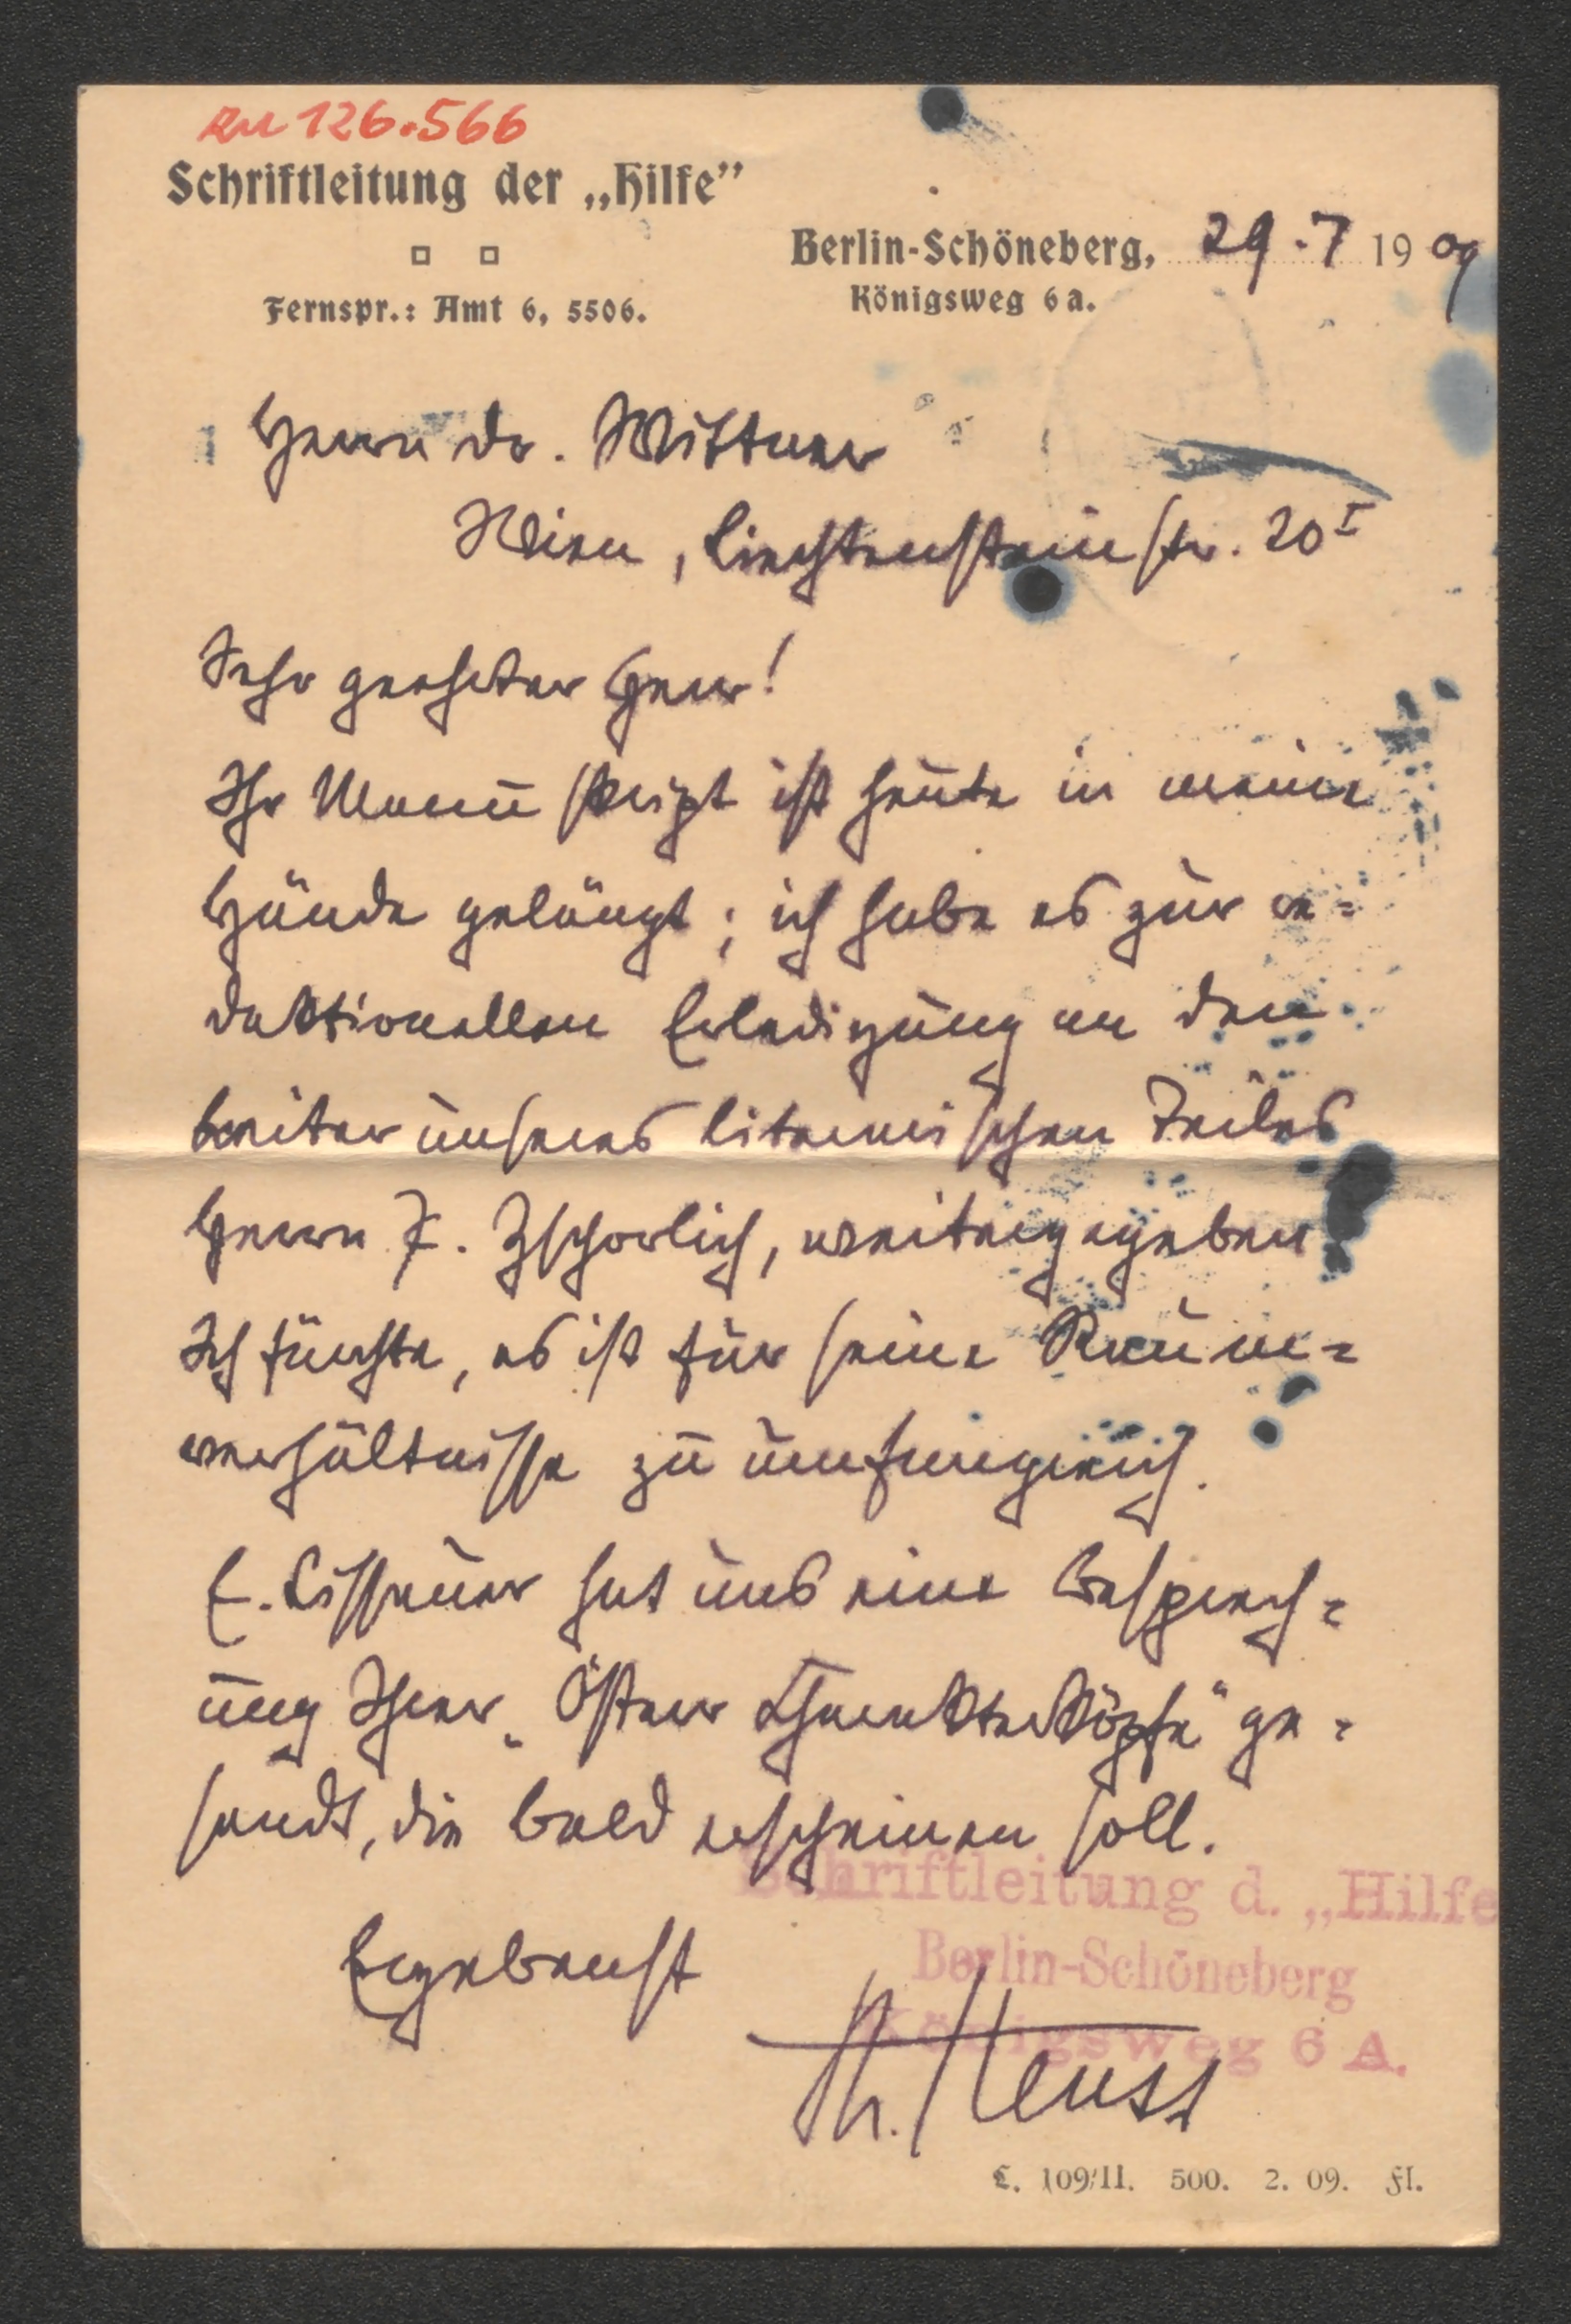 zu 126.566
Schriftleitung der „Hilfe”
Berlin-Schöneberg, 29.7 1909
Fernspr.: Amt 6, 5506.
Königsweg 6a.
Herrn Dr. Wittner
Wien, Liechtensteinstr. 20 I
Sehr geehrter Herr!
Ihr Manuskript ist heute in meine
Hände gelangt; ich habe es zur re-
daktionellen Erledigung an den
Leiter unseres literarischen Teiles
Herrn F. Zschorlich, weitergegeben
Ich fürchte, es ist für seine Raum-
verhältnisse zu umfangreich.
E. Lissauer hat uns eine Besprech-
ung Ihrer „Österr Charakterköpfe" ge-
sandt, die bald erscheinen soll.
Ergebenst
Th. Heuss
Schriftleitung d. „Hilfe
Berlin-Schöneberg
Königsweg 6 A.
C. 109/II. 500. 2. 09. Fl.